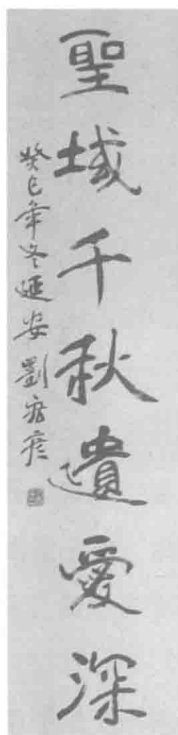 聖域千秋遺愛深
癸巳年冬延安劉